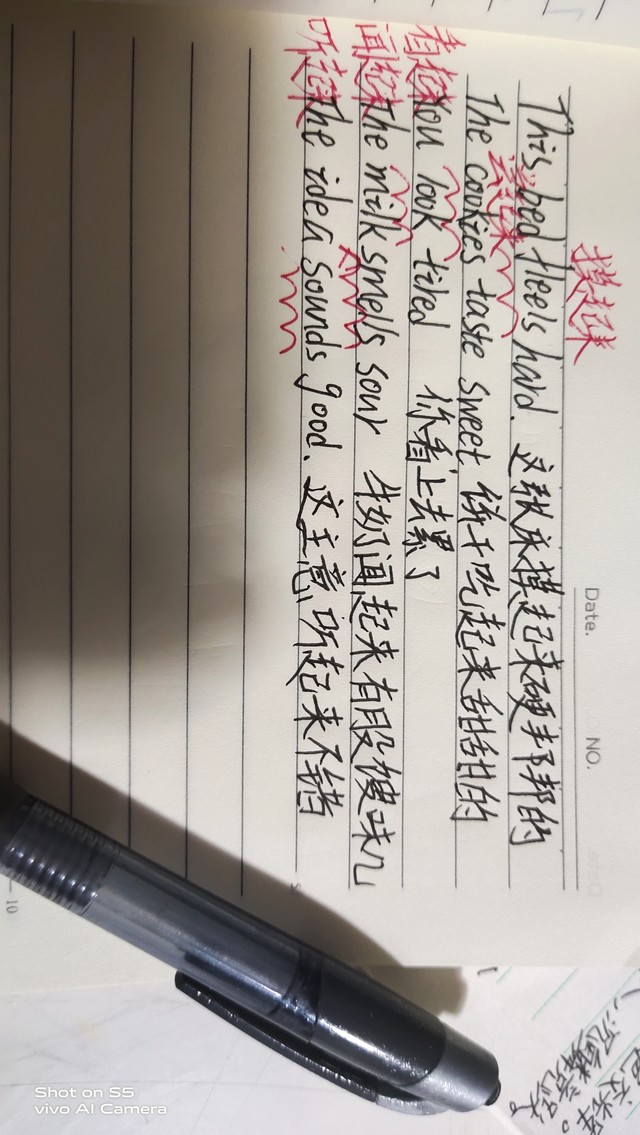 Date. NO.
摸起来
This bed fleels hard. 这张床摸起来硬邦邦的
尝起来
The cookies taste sweet. 饼干吃起来甜甜的
看起来
You look tired 你看上去累了
闻起来
The milk smells sour 牛奶闻起来有股馊味儿
听起来
The idea sounds good. 这主意听起来不错
10
Shot on S5
vivo AI Camera